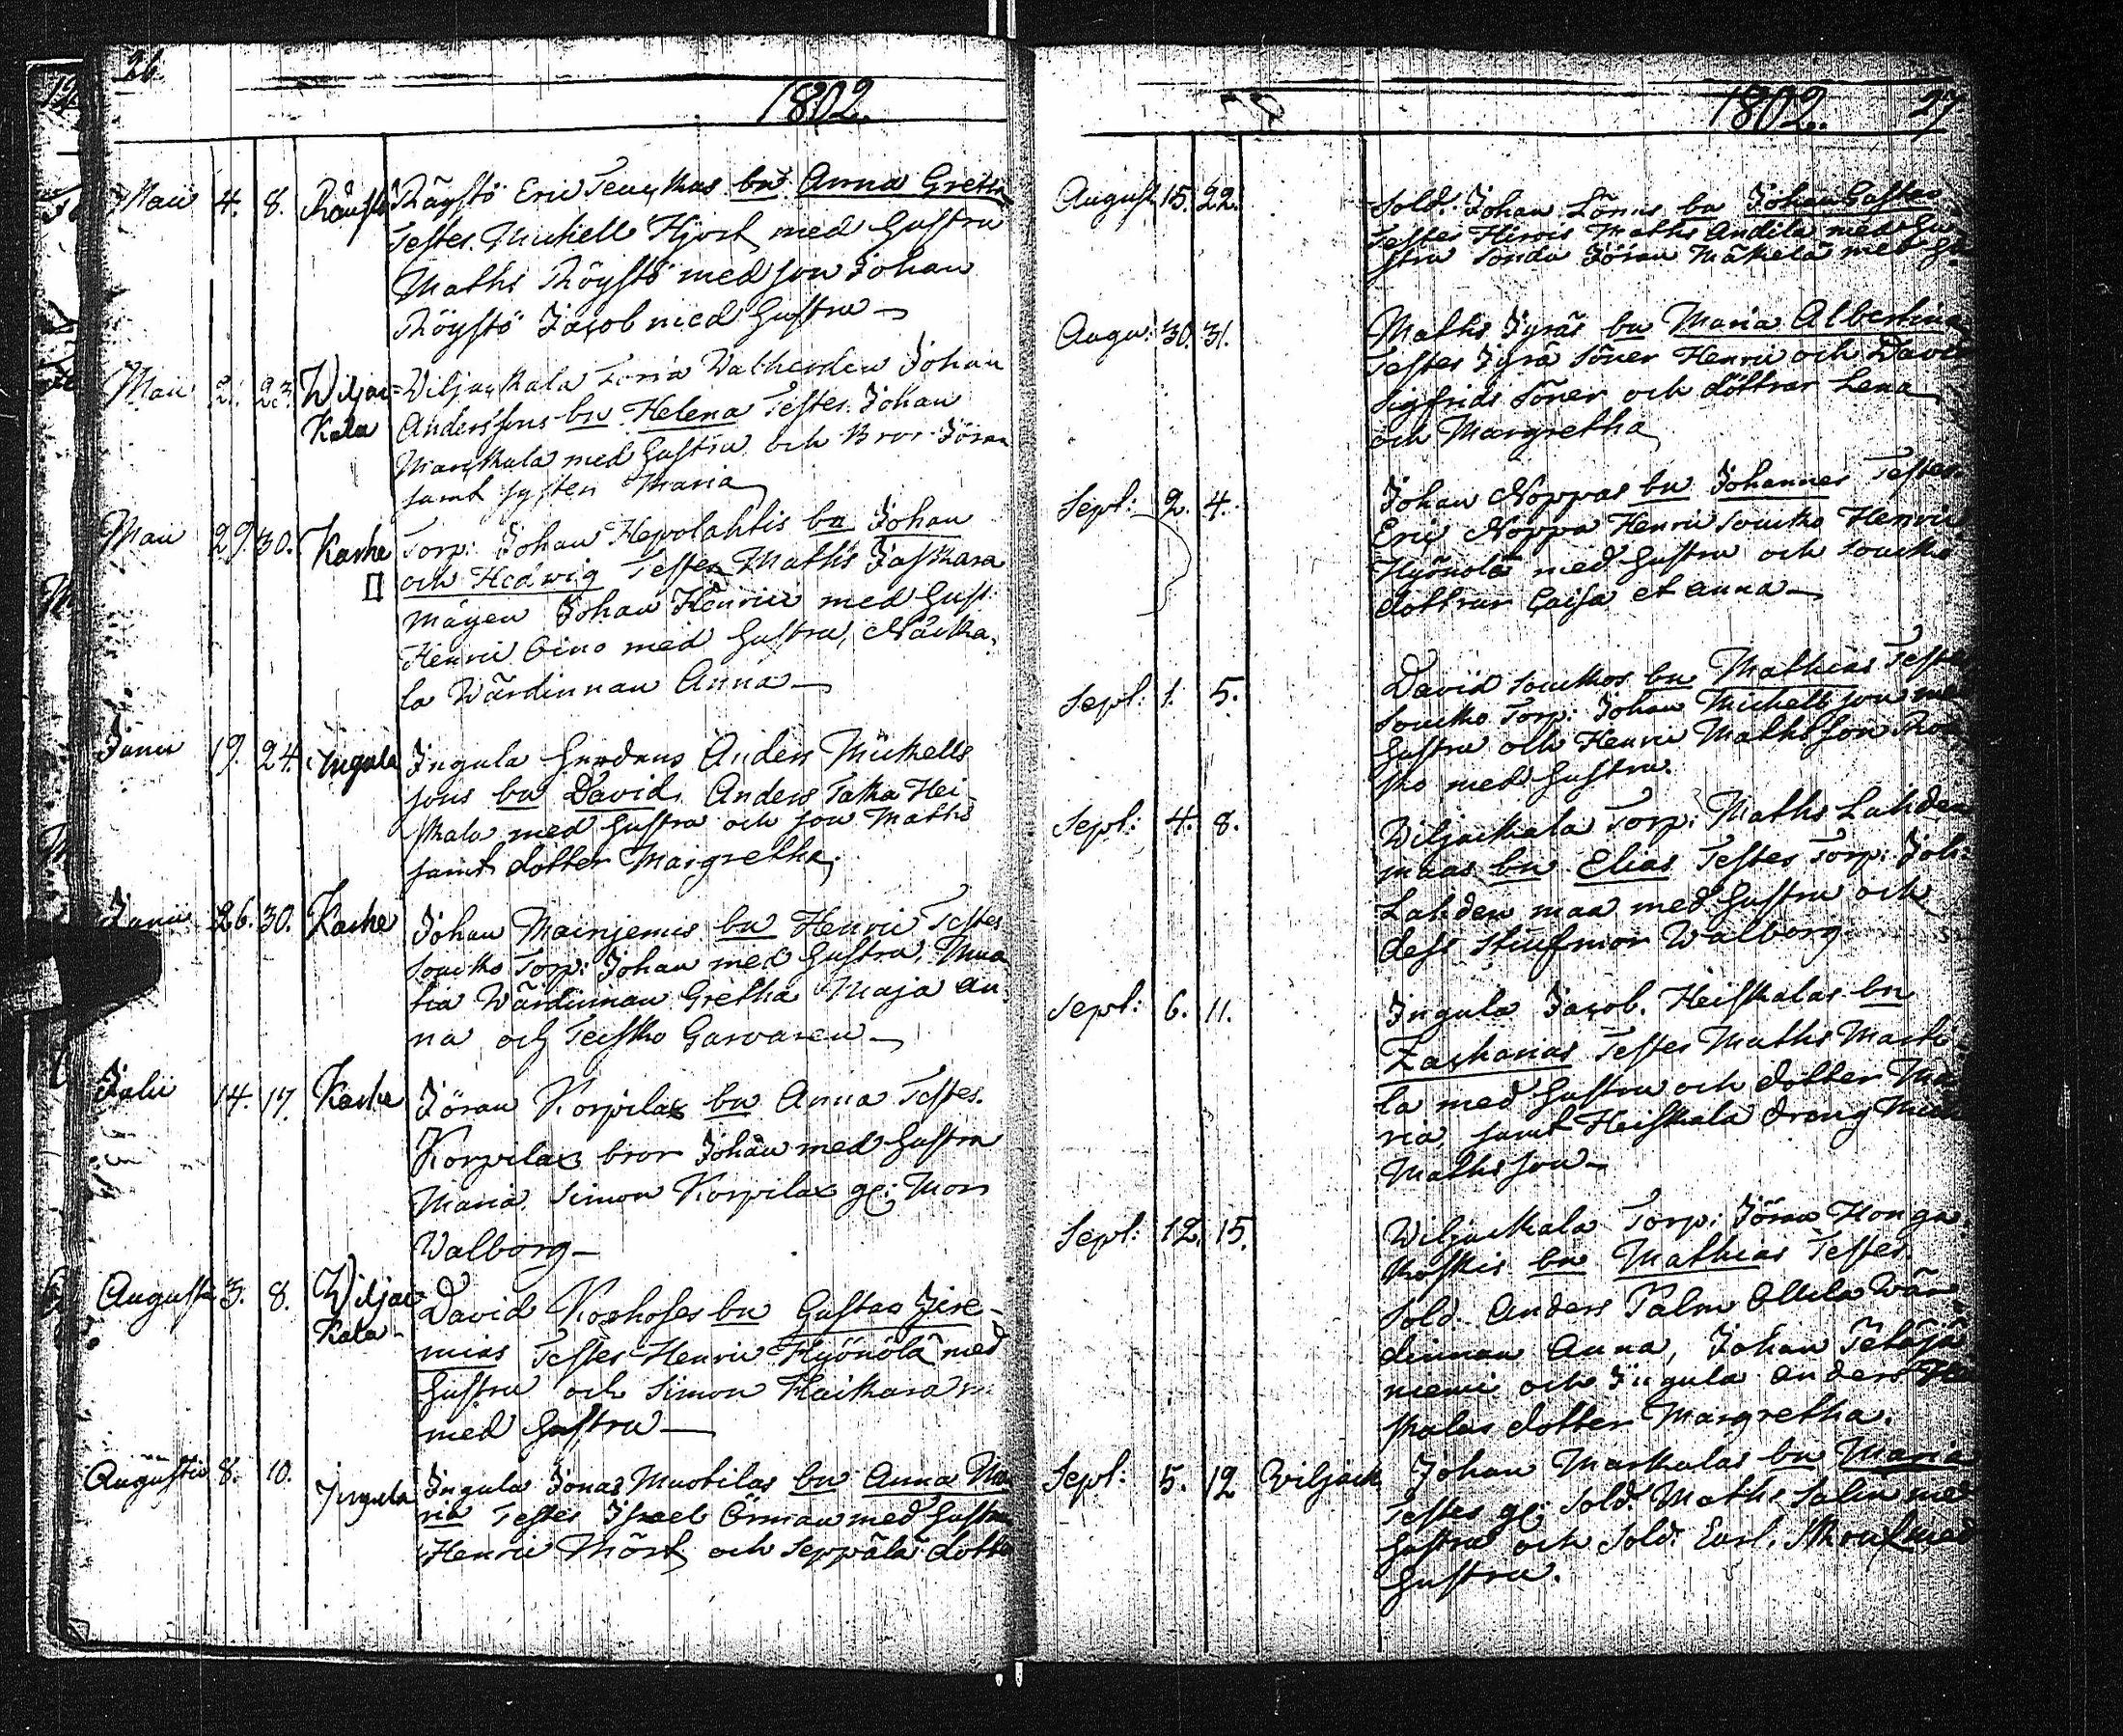 26.
1802.
Maii 4. 8. Röystö Röystö Eric Jeus,kas bn Anna Gretha
Testes. Michell Hjort med Hustru
Maths Röystö med son Johan
Röystö Jacob med Hustru
Maii 21. 23. Wiljac= Viljackala Johan
Kala Anderssons bn Helena Testes. Johan
Mar,kula med Hustru och Bror Jöran
samt syster Maria
Maii 29. 30. Karhe Torp: Johan Hepolahtis bn Johan
och Hedwig Testes Maths Jaskara
mågen Johan Henric med Hust:
Henric Oino med Hustru,
la Wärdinnan Anna
Junii 19. 24. Ingula Ingula Anders Mickells
sons bn David, Anders Taka Hei-
skala med Hustru och son Maths
samt dotter Margretha,
Junii 26. 30. Karhe Johan Mainjemis bn Henric Testes
Soucko Torp: Johan med Hustru,
Wärdinnan Gretha Maja An-
na och Teisko Garvaren
Julii 14. 17. Karhe Jöran Korpilax bn Anna Testes.
Korpilax bror Johan med Hustru
Maria. Simon Korpilax gl: Mor
Walborg
Augusti 3. 8. Wiljac David Korhoses bn Gustav Jere-
Kala mias Testes Henric Hyönölä med
Hustru och Simon Haikara
med Hustru
Augustii 8. 10. Ingula Ingula Jonas Muotilas bn Anna Ma
ria Testes Israel Örman med Hustru
Henric Mört och Seppälä dotter
1802. 27
August 15. 22. Sold. Johan Lönns bn Johan Gustav
Testes Maths Andila med Hu-
stru Jöran Mäkelä med
Augu: 30. 31. Maths Jyräs bn Maria Albertina
Testes Jyrä Söner Henric och David
Sigfrids Söner och döttrar Lena
och Margretha
Sept: 2. 4. Johan Noppas bn Johannes Testes
Eric Noppa Henric Soucko Henric
Hyönölä med Hustru och Soucko
döttrar Caisa et Anna
Sept: 1. 5. David Souckos bn Mathias Testes
Soucko Torp: Johan Michellsson med
Hustru och Henric Mathsson
sko med Hustru.
Sept: 4. 8. Viljackala Torp: Maths Lahden
maas bn Elias Testes Torp: Joh:
Lahden maa med Hustru och
dess Stiufmor Walborg
Sept: 6. 11. Ingula Jacob. Heiskalas bn
Zacharias Testes Maths Marti-
la med Hustru och dotter Ma
ria samt Heiskala dreng Mich
Mathsson
Sept: 12. 15. Wiljackala Torp: Jöran Honga
koskis bn Mathias Testes
Sold. Anders Palm Ollila Wär-
dinnan Anna, Johan
niemi och Ingula Anders Hei
skalas dotter Margretha.
Sept: 5. 12 Viljack Johan Markulas bn Maria
Testes gl: Sold. Maths Salin med
Hustru och Sold. Carl. med
Hustru.